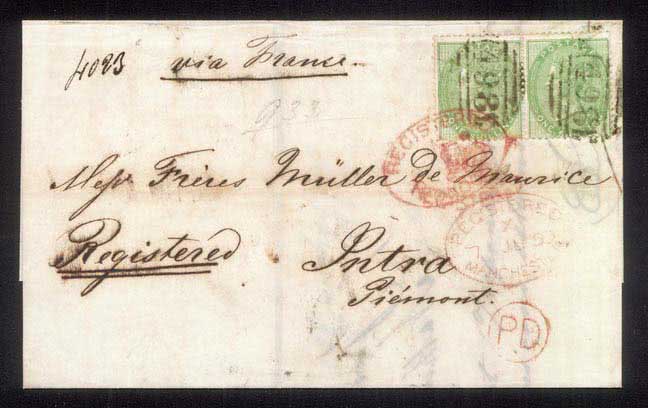 4023 via France
933
REGISTERED
Messrs Frères Müller de Maurice
REGISTERED
MANCHESTER
Registered Intra
Piémont.
PD
498
498